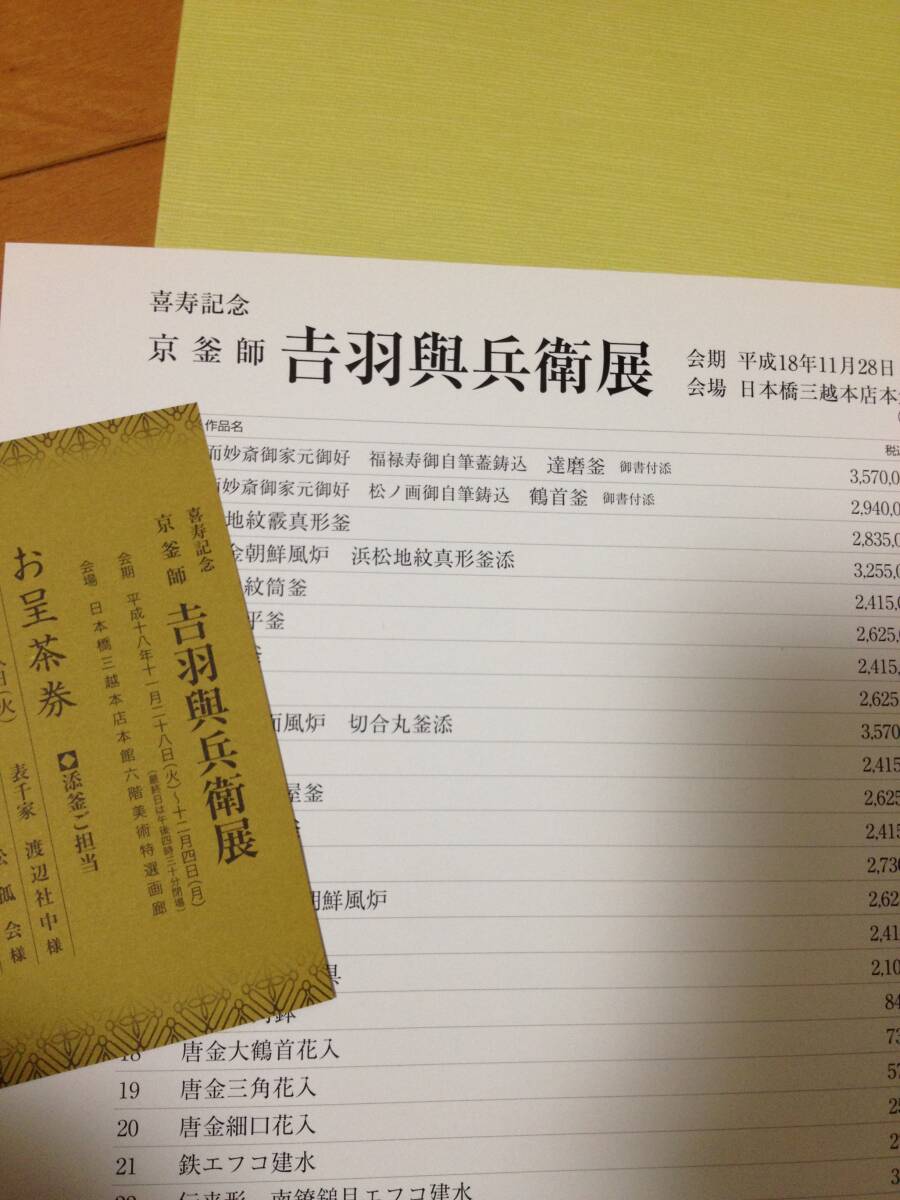 喜寿記念
京釜師 𠮷羽與兵衛展
会期 平成18年11月28日
会場 日本橋三越本店本
作品名
税込
而妙斎御家元御好 福禄寿御自筆蓋鋳込 達磨釜 御書付添
3,570,0
而妙斎御家元御好 松ノ画御自筆鋳込 鶴首釜 御書付添
2,940,0
地紋霰真形釜
2,835,0
金朝鮮風炉 浜松地紋真形釜添
3,255,0
紋筒釜
2,415,0
平釜
2,625,0
釜
2,415,
2,625,
面風炉 切合丸釜添
3,570,
2,415,
屋釜
2,625,
2,415,
2,730,
朝鮮風炉
2,62
2,41
具
2,10
鉢
84
18 唐金大鶴首花入
73
19 唐金三角花入
57
20 唐金細口花入
25
21 鉄エフコ建水
22 伝来形 南鐐鎚目エフコ建水
3
喜寿記念
京釜師 𠮷羽與兵衛展
会期 平成十八年十一月二十八日(火)～十二月四日(月)
(最終日は午後四時三十分閉場)
会場 日本橋三越本店本館六階美術特選画廊
お呈茶券
◆添釜ご担当
日(火) 表千家 渡辺社中様
松孤会様